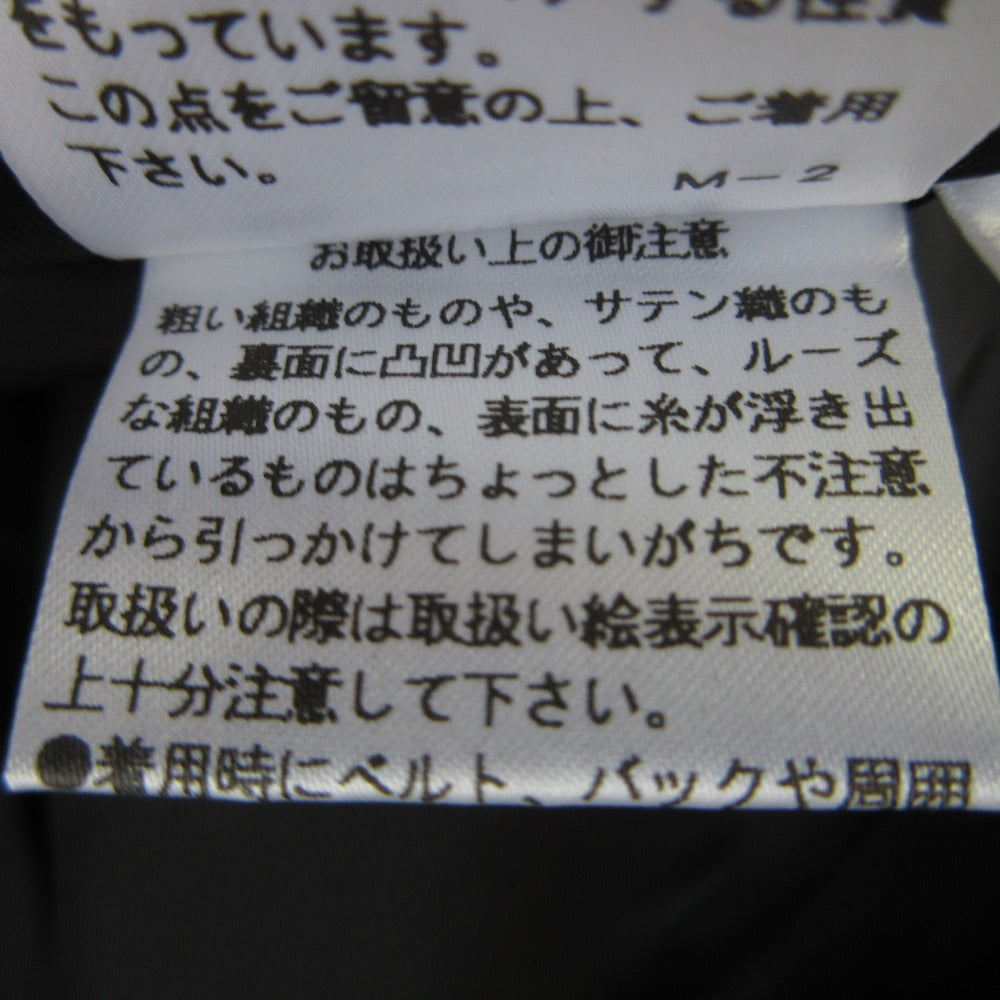 をもっています。
この点をご留意の上、ご着用
下さい。
M－2
お取扱い上の御注意
粗い組織のものや、サテン織のも
の、裏面に凸凹があって、ルーズ
な組織のもの、表面に糸が浮き出
ているものはちょっとした不注意
から引っかけてしまいがちです。
取扱いの際は取扱い絵表示確認の
上十分注意して下さい。
●着用時にベルト、バックや周囲